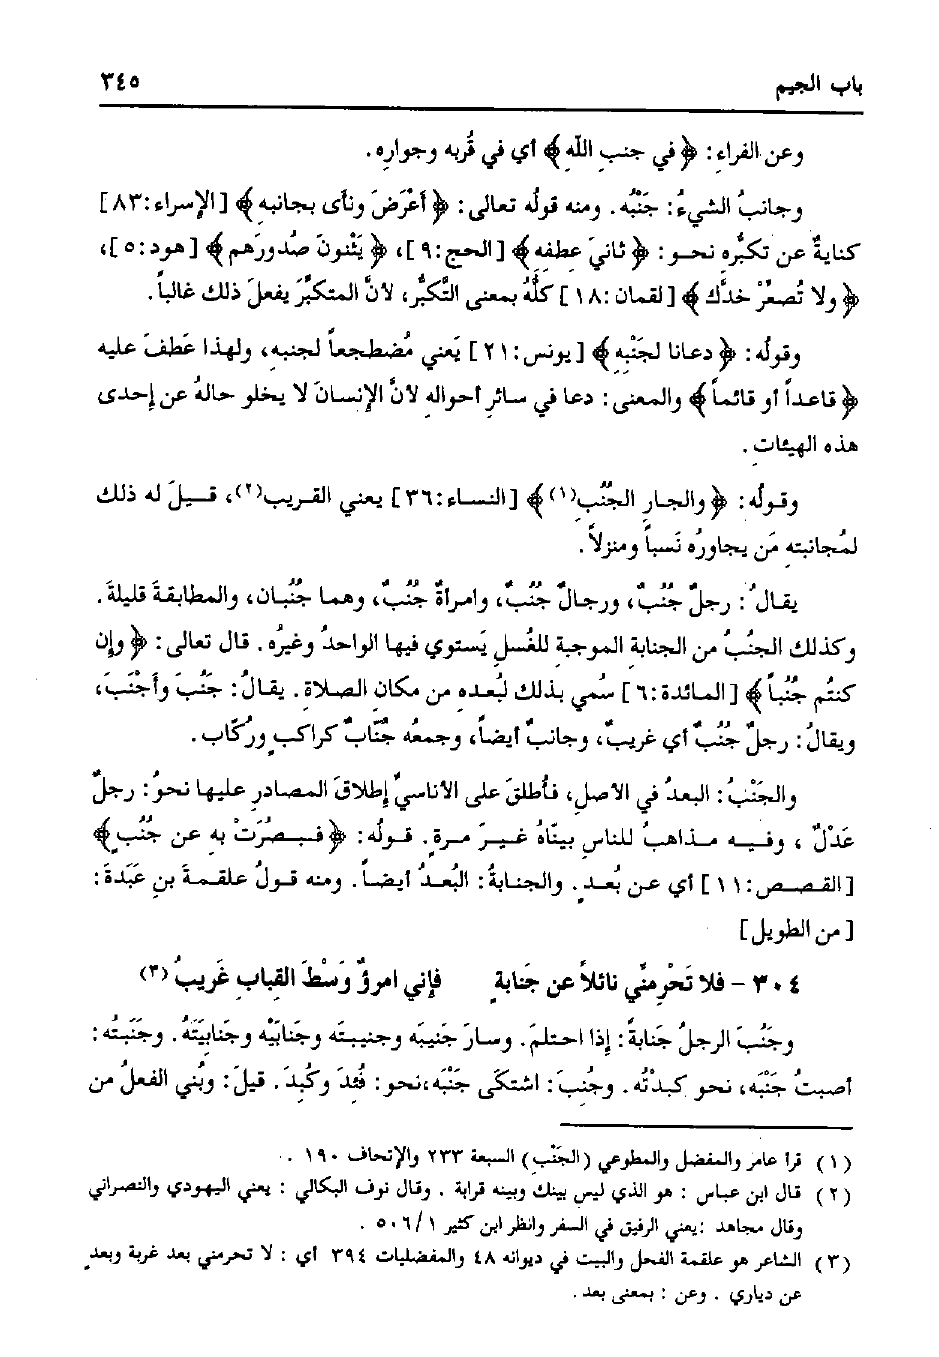 باب الجيم ٣٤٥
وعن الفراء: ﴿في جنبِ اللهِ﴾ أي في قُربه وجوارِه.
وجانبُ الشيءُ: جَنْبُه. ومنه قولُه تعالى: ﴿أعْرَضَ ونأى بجانبِه﴾ [الإسراء:٨٣]
كنايةٌ عن تكبُّرِه نحو: ﴿ثانيَ عطفِه﴾ [الحج:٩]، ﴿يَثْنونَ صُدورَهم﴾ [هود:٥]،
﴿ولا تُصعِّرْ خدَّك﴾ [لقمان:١٨] كلُّهُ بمعنى التَّكبُّرِ، لأنَّ المتكبِّرَ يفعلَ ذلك غالباً.
وقولُه: ﴿دعانا لجَنْبِه﴾ [يونس:٢١] يَعني مُضطجعاً لجنبِه، ولهذا عَطفَ عليه
﴿قاعداً أو قائماً﴾ والمعنى: دعا في سائرِ أحواله لأنَّ الإنسانَ لا يخلو حالهُ عن إحدى
هذه الهيئاتِ.
وقولُه: ﴿والجارِ الجنُبِ(١)﴾ [النساء:٣٦] يعني القريب(٢)، قيلَ له ذلك
لمُجانبتِه مَن يجاورُه نَسباً ومنزلاً.
يقالُ: رجلٌ جُنُبٌ، ورجالٌ جُنُبٌ، وامرأةٌ جُنُبٌ، وهما جُنُبان، والمطابقةُ قليلةَ.
وكذلك الجنُبُ من الجنابةِ الموجبة للغُسلِ يَستوي فيها الواحدُ وغيرُه. قال تعالى: ﴿وإن
كنتُم جُنُباً﴾ [المائدة:٦] سُمي بذلك لبُعدِه من مكانِ الصلاةِ. يقالُ: جَنُبَ وأجْنَبَ،
ويقالُ: رجلٌ جُنُبٌ أي غريبٌ، وجانبٌ أيضاً، وجمعهُ جُنّابٌ كراكبٍ ورُكّاب.
والجَنْبُ: البعدُ في الأصلِ، فأُطلقَ على الأناسيِّ إطلاقَ المصادرِ عليها نحوُ: رجلٌ
عَدْلٌ، وفيه مذاهبُ للناسِ بينّاهُ غيرَ مرةٍ. قولُه: ﴿فبصُرَتْ به عن جُنُبٍ﴾
[القصص:١١] أي عن بُعدٍ. والجنابةُ: البُعدُ أيضاً. ومنه قولُ علقمةَ بنِ عَبَدَةَ:
[من الطويل]
٣٠٤ - فلا تَحْرِمنِّي نائلاً عن جَنابةٍ فإني امرؤٌ وَسْطَ القبابِ غَريبُ(٣)
وجَنُبَ الرجلُ جَنابةً: إذا احتلمَ. وسارَ جَنيبَه وجنيبتَه وجَنابَيْه وجنابِيَتَهُ. وجَنَبتُه:
أصبتُ جَنْبَه، نحو كبدْتُه. وجُنبَ: اشتكَى جَنْبَه، نحو: فُئدَ وكُبدَ. قيلَ: وبُني الفعلُ من
(١) قرأ عامر والمفضل والمطوعي (الجَنْبِ) السبعة ٢٣٣ والإتحاف ١٩٠.
(٢) قال ابن عباس: هو الذي ليس بينك وبينه قرابة. وقال نوف البكالي: يعني اليهودي والنصراني
وقال مجاهد: يعني الرفيق في السفر وانظر ابن كثير ٥٠٦/١.
(٣) الشاعر هو علقمة الفحل والبيت في ديوانه ٤٨ والمفضليات ٣٩٤ أي: لا تحرمني بعد غربة وبعدٍ
عن دياري. وعن: بمعنى بعد.